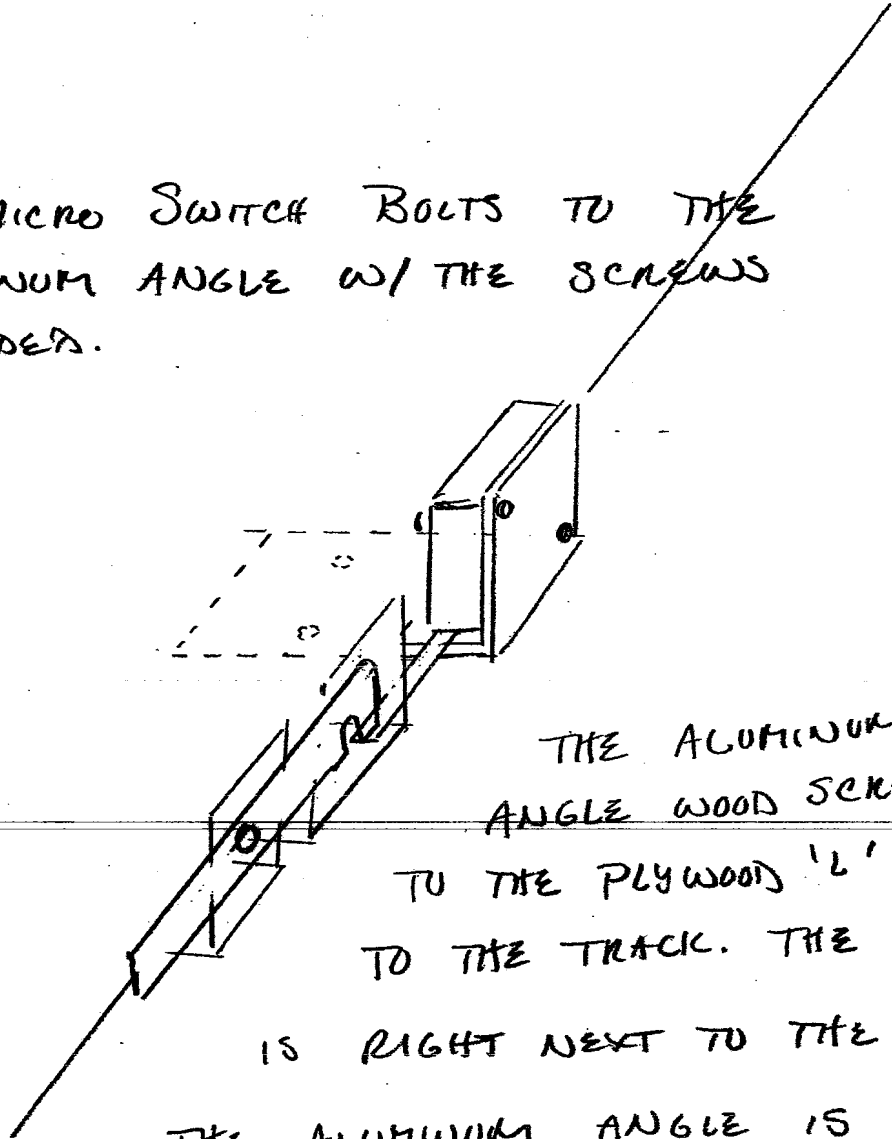 MICRO SWITCH BOLTS TO THE
NUM ANGLE W/ THE SCREWS
DED.
THE ALUMINUM
ANGLE WOOD SCR
TO THE PLYWOOD 'L'
TO THE TRACK. THE
IS RIGHT NEXT TO THE
THE ALUMINUM ANGLE IS